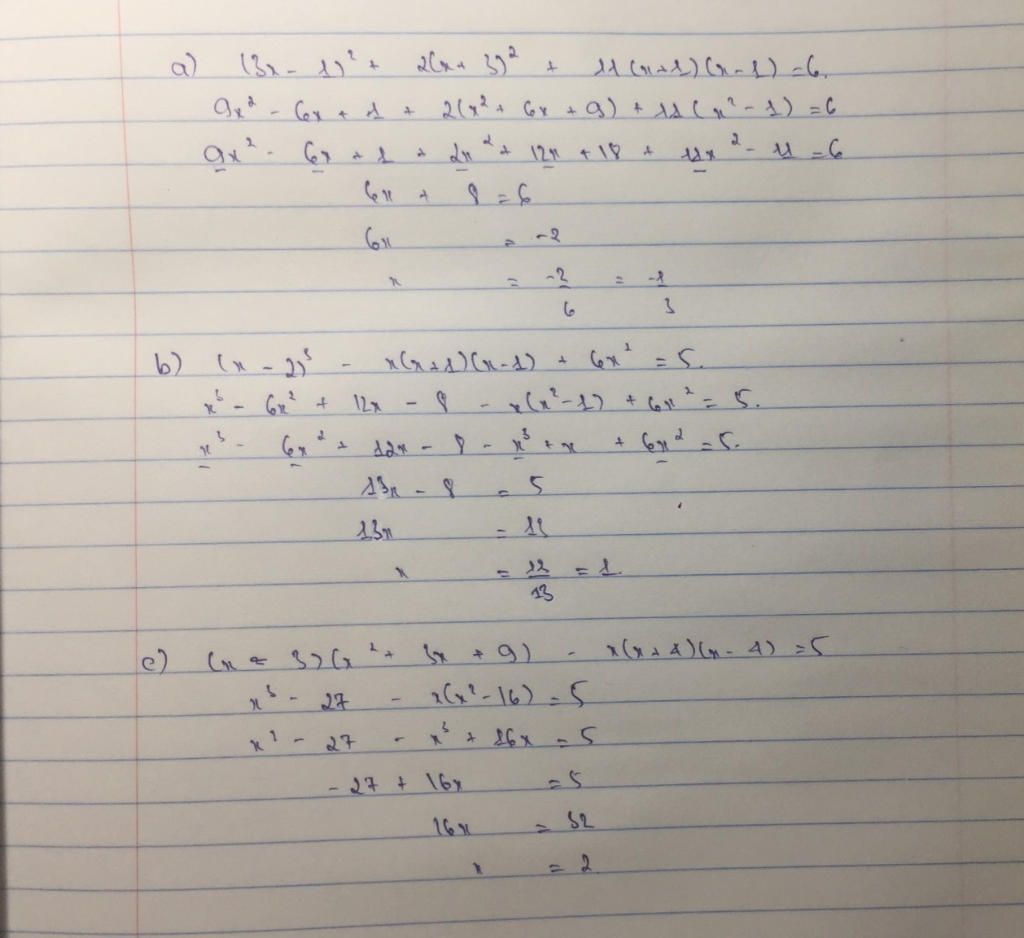 a) (3x - 1)² + 2(x + 3)² + 11(x+1)(x-1) = 6.
9x² - 6x + 1 + 2(x² + 6x + 9) + 11(x² - 1) = 6
9x² - 6x + 1 + 2x² + 12x + 18 + 11x² - 11 = 6
6x + 8 = 6
6x = -2
x = -2/6 = -1/3
b) (x - 2)³ - x(x+1)(x-1) + 6x² = 5.
x³ - 6x² + 12x - 8 - x(x²-1) + 6x² = 5.
x³ - 6x² + 12x - 8 - x³ + x + 6x² = 5.
13x - 8 = 5
13x = 13
x = 13/13 = 1.
c) (x - 3)(x² + 3x + 9) - x(x+4)(x-4) = 5
x³ - 27 - x(x²-16) = 5
x³ - 27 - x³ + 16x = 5
-27 + 16x = 5
16x = 32
x = 2